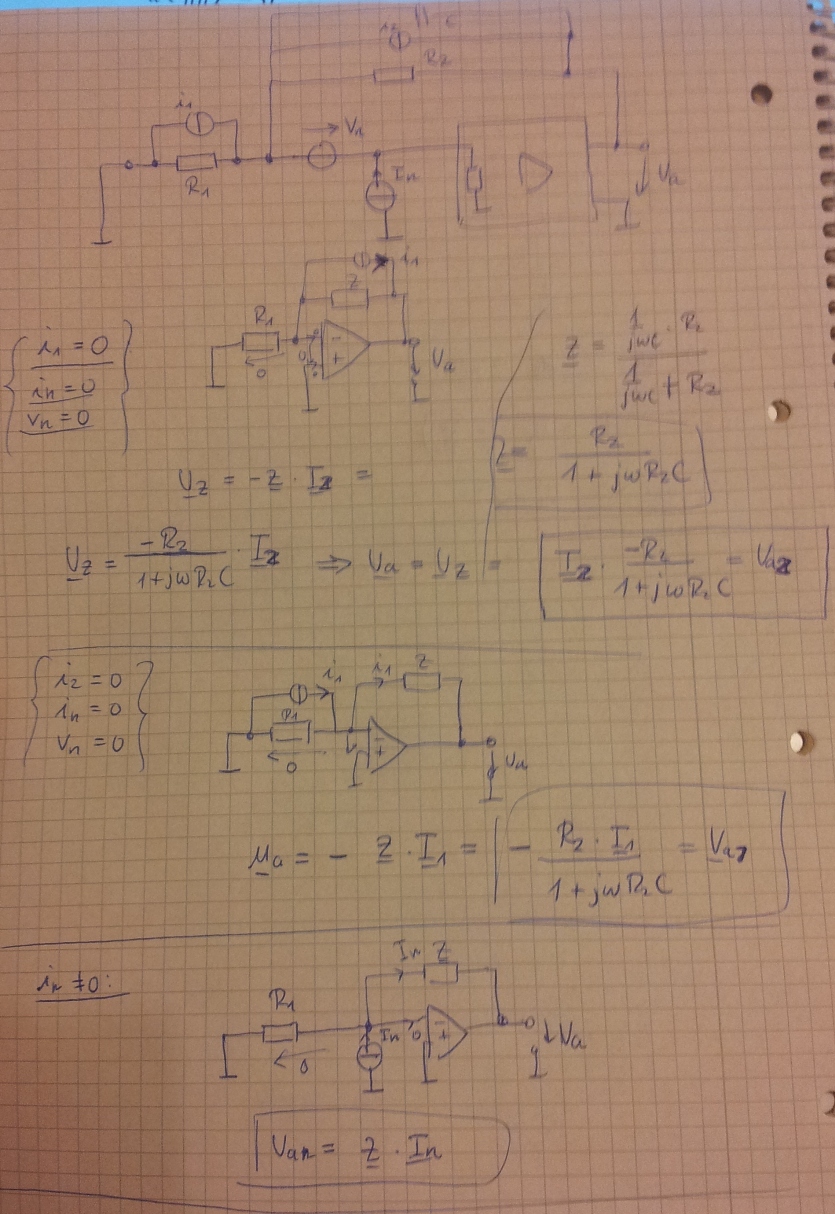 i₂ C
R₂
i₁
Vₙ
R₁
Iₙ
Vₐ
i₁
Z
R₁
0
Vₐ
i₁ = 0
iₙ = 0
vₙ = 0
Z = (1/jωC · R₂) / (1/jωC + R₂)
Z = R₂ / (1 + jωR₂C)
U_z = -Z · I₂ =
U_z = -R₂ / (1+jωR₂C) · I₂ ⇒ Vₐ = U_z = I₂ · -R₂ / (1+jωR₂C) = Vₐ₂
i₂ = 0
iₙ = 0
vₙ = 0
i₁
i₁
Z
R₁
0
Uₐ
Uₐ = - Z · I₁ = - R₂ · I₁ / (1 + jωR₂C) = Vₐ₁
iₙ ≠ 0:
Iₙ Z
R₁
Iₙ
0
0
Vₐ
Vₐₙ = Z · Iₙ